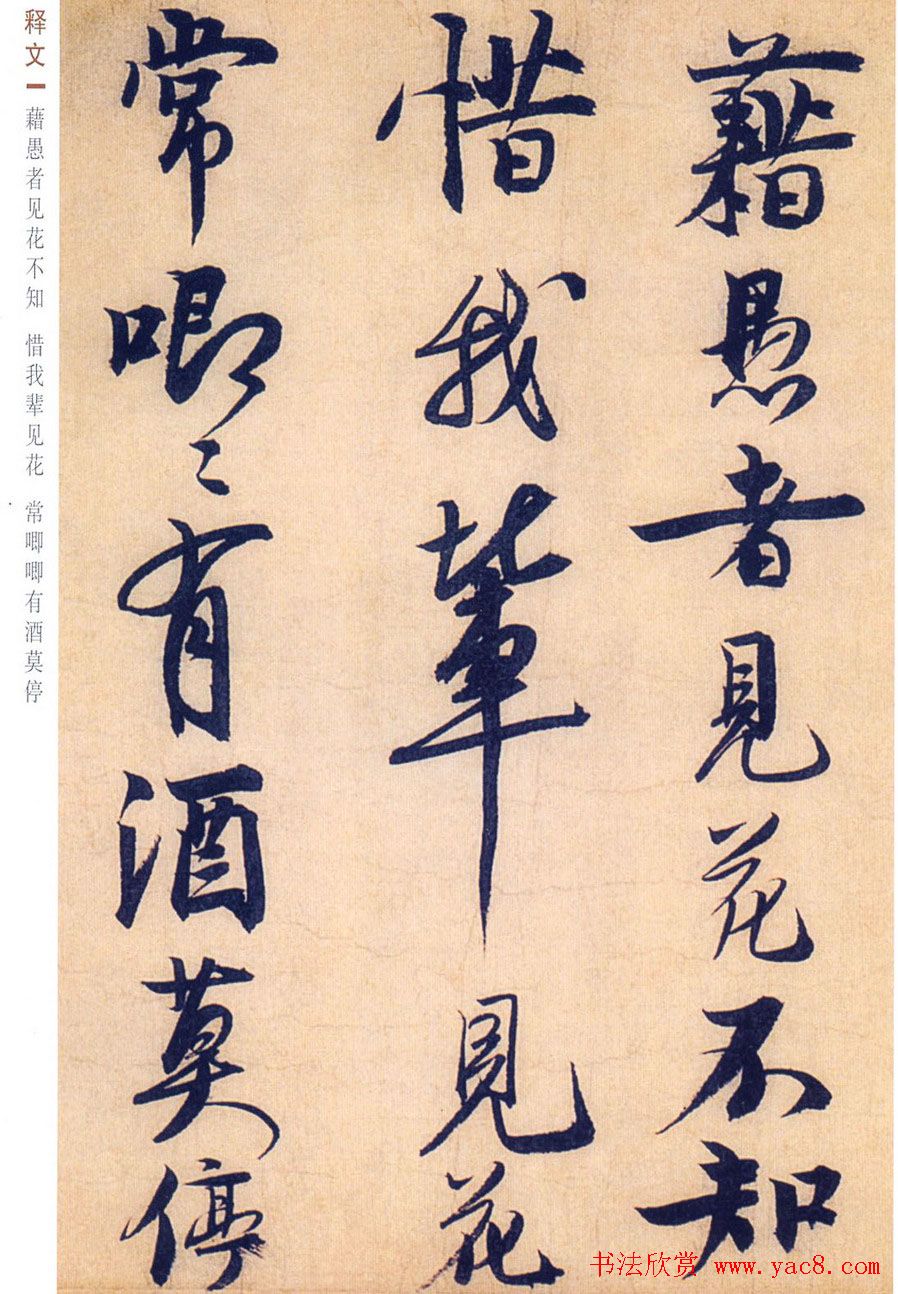 藉愚者見花不知
惜我輩見花
常唧〻有酒莫停
释文 藉愚者见花不知 惜我辈见花 常唧唧有酒莫停
书法欣赏 www.yac8.com